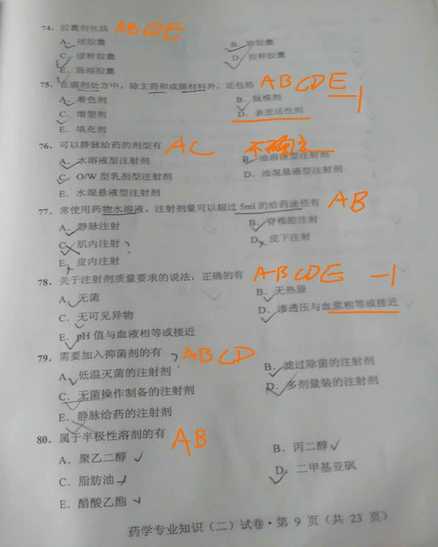 74. 胶囊剂包括 ABCDE
A、硬胶囊 B、软胶囊
C、缓释胶囊 D、控释胶囊
E、肠溶胶囊
75. 在膜剂处方中，除主药和成膜材料外，还包括 ABCDE
A、着色剂 B、脱模剂 -1
C、增塑剂 D、表面活性剂
E、填充剂
76. 可以静脉给药的剂型有 AC 不确定
A、水溶液型注射剂 B、油溶液型注射剂
C、O/W 型乳剂型注射剂 D、油混悬液型注射剂
E、水混悬液型注射剂
77. 常使用药物水溶液，注射剂量可以超过 5ml 的给药途径有 AB
A、静脉注射 B、脊椎腔注射
C、肌内注射 D、皮下注射
E、皮内注射
78. 关于注射剂质量要求的说法，正确的有 ABCDE -1
A、无菌 B、无热原
C、无可见异物 D、渗透压与血浆相等或接近
E、pH 值与血液相等或接近
79. 需要加入抑菌剂的有 ABCD
A、低温灭菌的注射剂 B、滤过除菌的注射剂
C、无菌操作制备的注射剂 D、多剂量装的注射剂
E、静脉给药的注射剂
80. 属于半极性溶剂的有 AB
A、聚乙二醇 B、丙二醇
C、脂肪油 D、二甲基亚砜
E、醋酸乙酯
药学专业知识（二）试卷·第 9 页（共 23 页）